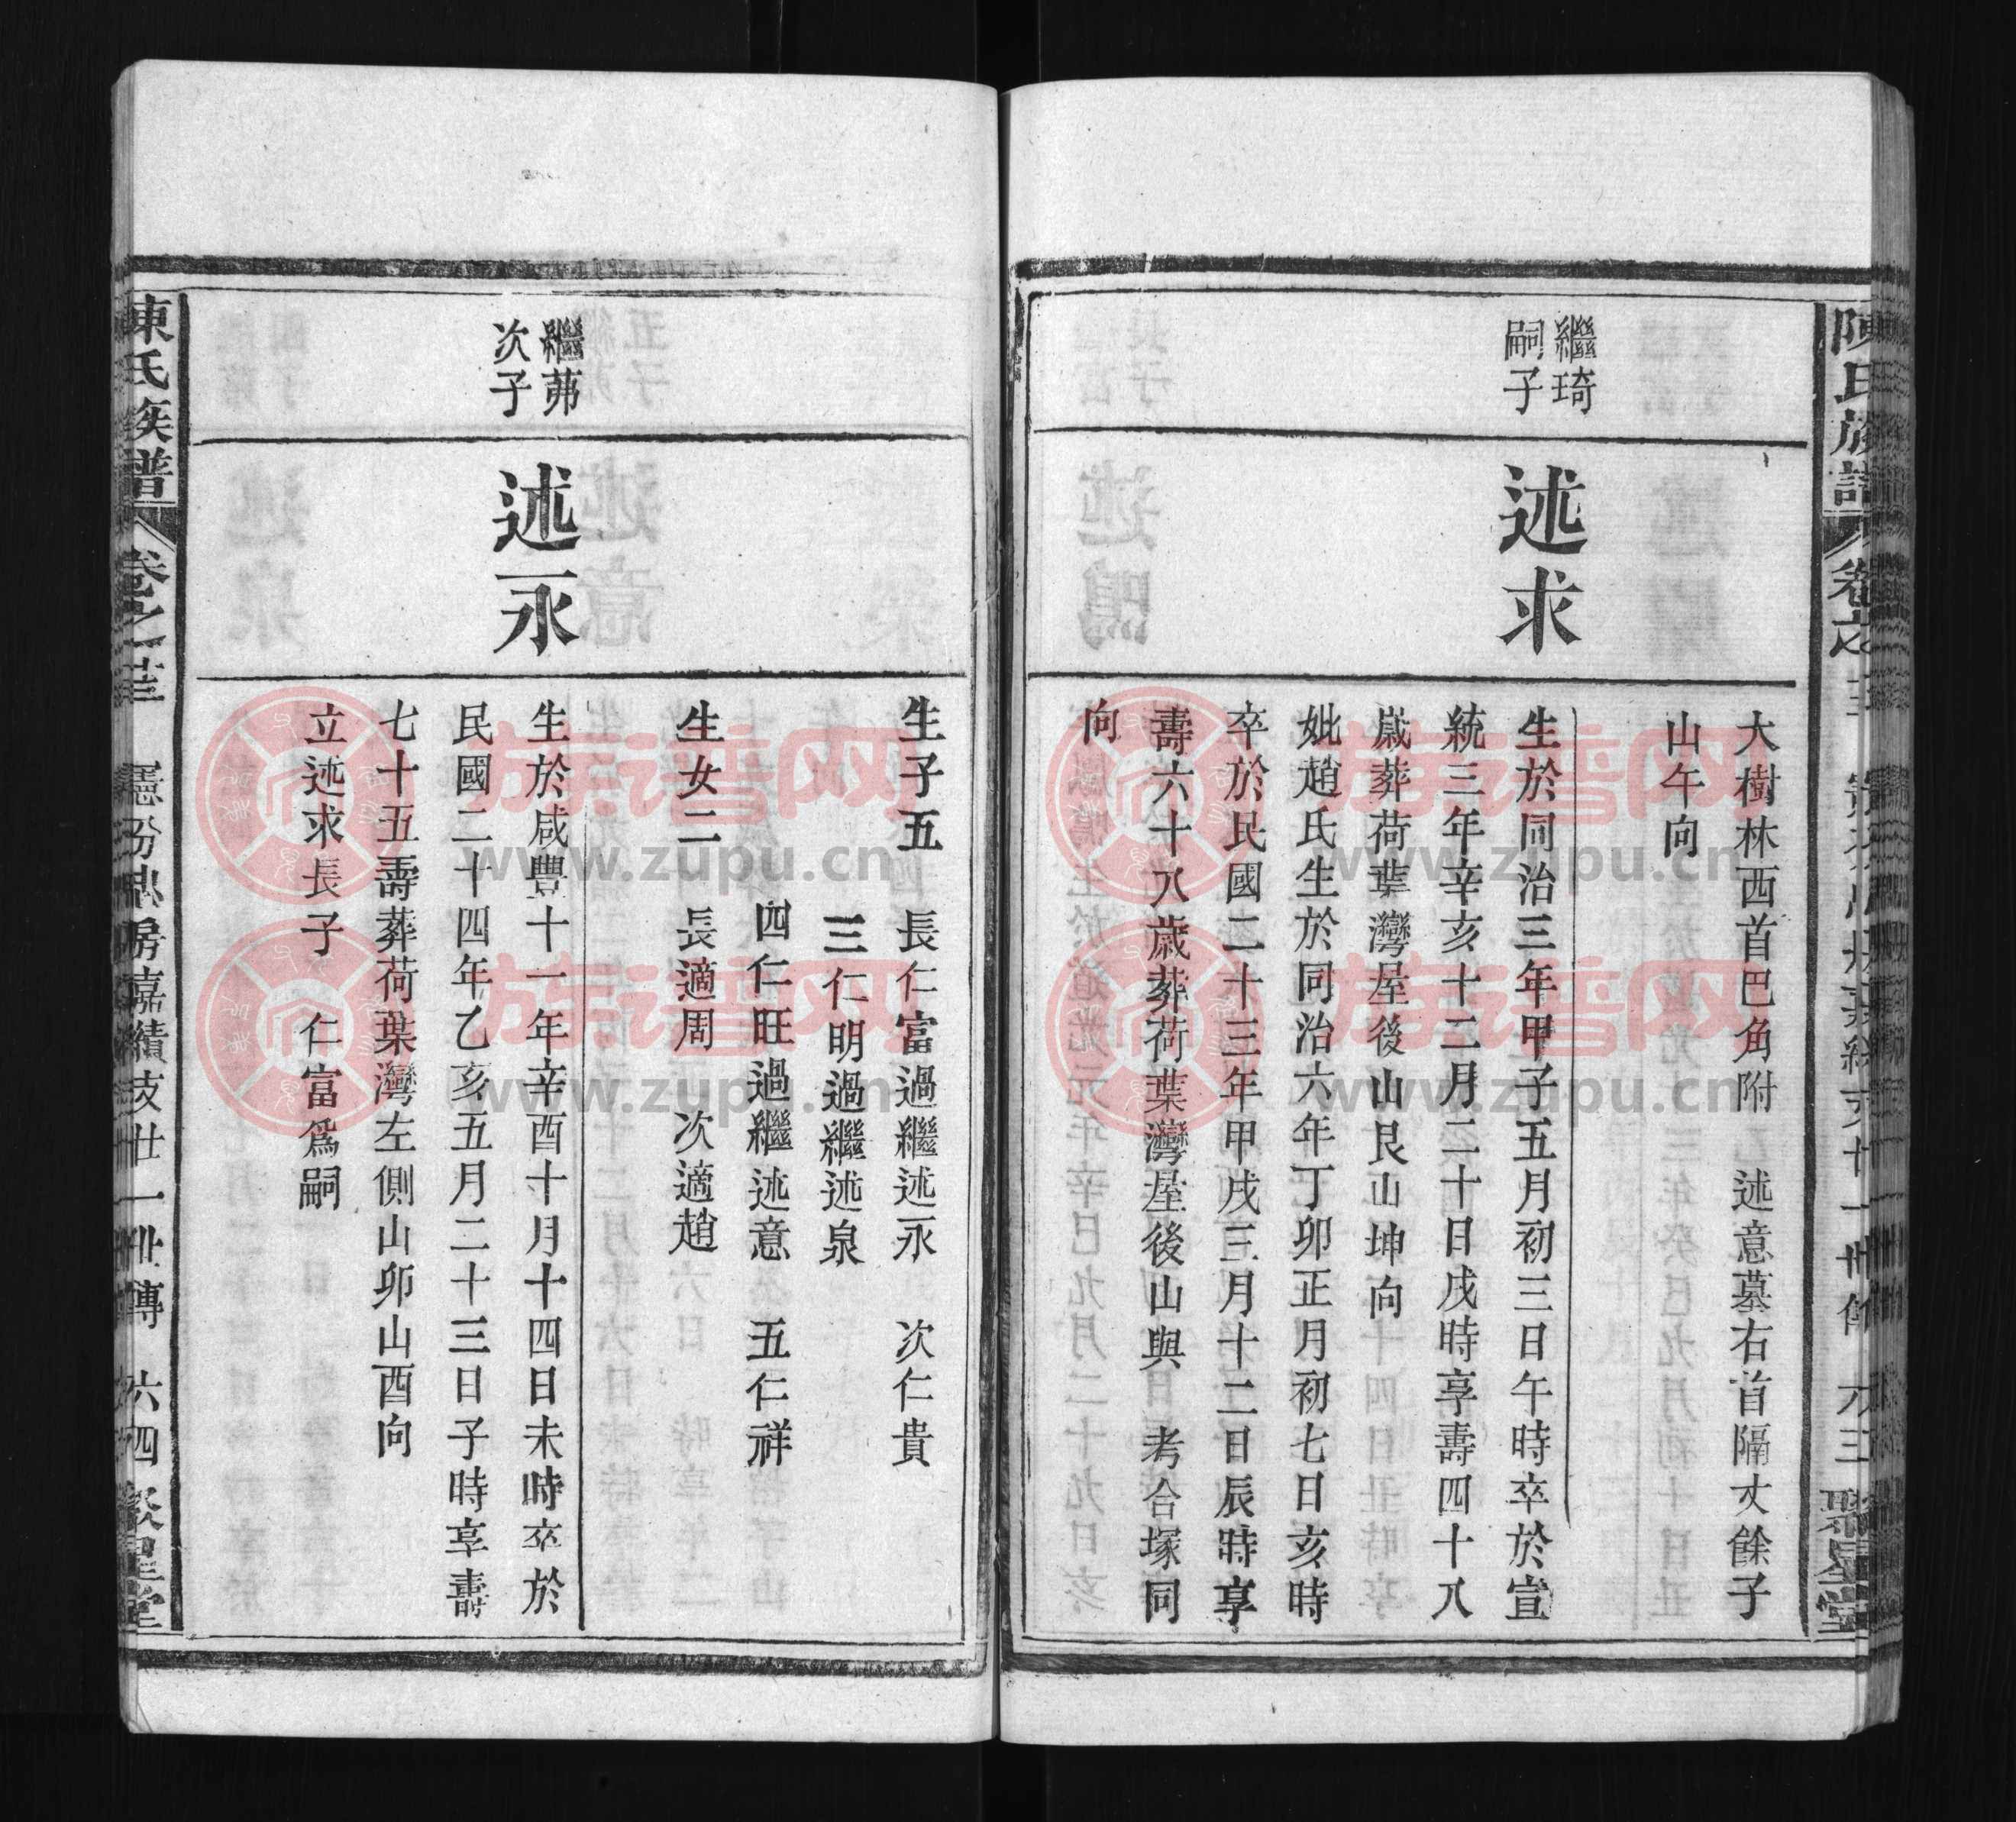 陳氏族譜
六三
聚星堂
大樹林西首巴角附 述意墓右首隔丈餘子
山午向
繼琦
嗣子
述求
生於同治三年甲子五月初三日午時卒於宣
統三年辛亥十二月二十日戌時享壽四十八
歲葬荷葉灣屋後山艮山坤向
妣趙氏生於同治六年丁卯正月初七日亥時
卒於民國二十三年甲戌三月十二日辰時享
壽六十八歲葬荷葉灣屋後山與 考合塚同
向
生子五 長仁富過繼述永 次仁貴
三仁明過繼述泉
四仁旺過繼述意 五仁祥
生女二 長適周 次適趙
繼茀
次子
述永
生於咸豐十一年辛酉十月十四日未時卒於
民國二十四年乙亥五月二十三日子時享壽
七十五壽葬荷葉灣左側山卯山酉向
立述求長子 仁富為嗣
陳氏族譜
卷之
房嘉績支廿一世傳
六四
聚星堂
族谱网
www.zupu.cn
族谱网
www.zupu.cn
族谱网
www.zupu.cn
族谱网
www.zupu.cn